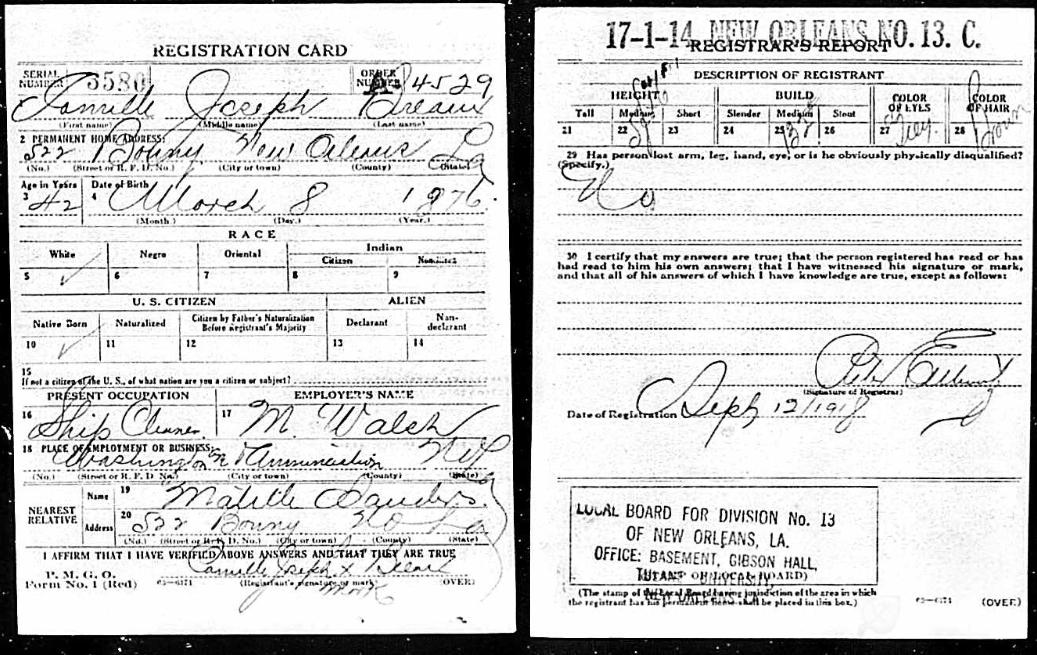 REGISTRATION CARD
SERIAL NUMBER 3580 ORDER NUMBER A 4529
Camille Joseph Breaux
(First name) (Middle name) (Last name)
2 PERMANENT HOME ADDRESS:
522 Bouny New Orleans La
(No.) (Street or R. F. D. No.) (City or town) (County) (State)
Age in Years Date of Birth
3 42 4 March 8 1876.
(Month.) (Day.) (Year.)
RACE
White Negro Oriental Indian
Citizen Noncitizen
5 ✓ 6 7 8 9
U. S. CITIZEN ALIEN
Native Born Naturalized Citizen by Father's Naturalization Before Registrant's Majority Declarant Non-declarant
10 ✓ 11 12 13 14
15
If not a citizen of the U. S., of what nation are you a citizen or subject?
PRESENT OCCUPATION EMPLOYER'S NAME
16 Ship Cleaner 17 M. Walsh
18 PLACE OF EMPLOYMENT OR BUSINESS:
Washington & Annunciation
(No.) (Street or R. F. D. No.) (City or town) (County) (State)
NEAREST RELATIVE
Name 19
Address 20 522 Bouny NO La
(No.) (Street or R. F. D. No.) (City or town) (County) (State)
I AFFIRM THAT I HAVE VERIFIED ABOVE ANSWERS AND THAT THEY ARE TRUE
P. M. G. O.
Form No. 1 (Red) 03—6171 (Registrant's signature or mark) (OVER)
Camille Joseph x Breaux
mark
17-1-14 NEW ORLEANS NO. 13. C.
REGISTRAR'S REPORT
DESCRIPTION OF REGISTRANT
HEIGHT BUILD COLOR OF EYES COLOR OF HAIR
Tall Medium Short Slender Medium Stout
21 22 23 24 25 26 27 Grey. 28 Brown
29 Has person lost arm, leg, hand, eye, or is he obviously physically disqualified?
(Specify.)
No
30 I certify that my answers are true; that the person registered has read or has
had read to him his own answers; that I have witnessed his signature or mark,
and that all of his answers of which I have knowledge are true, except as follows:
(Signature of Registrar)
Date of Registration Sept 12/1918
LOCAL BOARD FOR DIVISION No. 13
OF NEW ORLEANS, LA.
OFFICE: BASEMENT, GIBSON HALL,
NEW ORLEANS, LA.
(The stamp of the Local Board having jurisdiction of the area in which
the registrant has his permanent home shall be placed in this box.) 03—6171 (OVER)